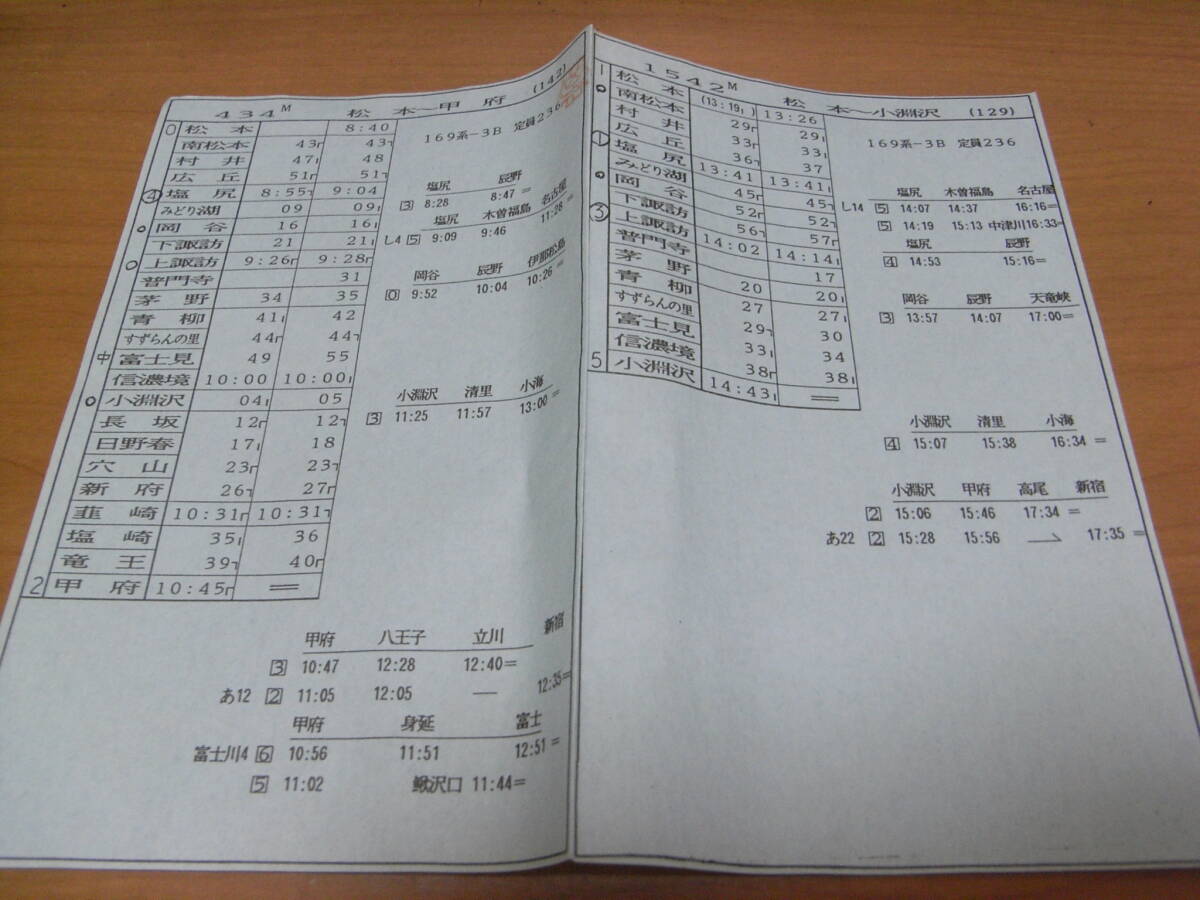 434M 松本〜甲府 (142)
0 松本 8:40
南松本 43 43
村井 47 48
広丘 51 51
④ 塩尻 8:55 9:04
みどり湖 09 09
岡谷 16 16
下諏訪 21 21
上諏訪 9:26 9:28
普門寺 31
茅野 34 35
青柳 41 42
すずらんの里 44 44
中 富士見 49 55
信濃境 10:00 10:00
小淵沢 04 05
長坂 12 12
日野春 17 18
穴山 23 23
新府 26 27
韮崎 10:31 10:31
塩崎 35 36
竜王 39 40
2 甲府 10:45 =
169系-3B 定員236
塩尻 辰野
3 8:28 8:47 =
塩尻 木曽福島 名古屋
し4 5 9:09 9:46 11:28 =
岡谷 辰野 伊那松島
0 9:52 10:04 10:26 =
小淵沢 清里 小海
3 11:25 11:57 13:00 =
甲府 八王子 立川 新宿
3 10:47 12:28 12:40=
あ12 2 11:05 12:05 — 12:35=
甲府 身延 富士
富士川4 6 10:56 11:51 12:51 =
5 11:02 鰍沢口 11:44=
1542M 松本〜小淵沢 (129)
1 松本 (13:19) 13:26
南松本 29 29
村井 33 33
広丘 36 37
① 塩尻 13:41 13:41
みどり湖 45 45
岡谷 52 52
③ 下諏訪 56 57
上諏訪 14:02 14:14
普門寺 17
茅野 20 20
青柳 27 27
すずらんの里 29 30
富士見 33 34
信濃境 38 38
5 小淵沢 14:43 =
169系-3B 定員236
塩尻 木曽福島 名古屋
し14 5 14:07 14:37 16:16=
5 14:19 15:13 中津川16:33=
塩尻 辰野
4 14:53 15:16=
岡谷 辰野 天竜峡
3 13:57 14:07 17:00=
小淵沢 清里 小海
4 15:07 15:38 16:34 =
小淵沢 甲府 高尾 新宿
2 15:06 15:46 17:34 =
あ22 2 15:28 15:56 17:35 =